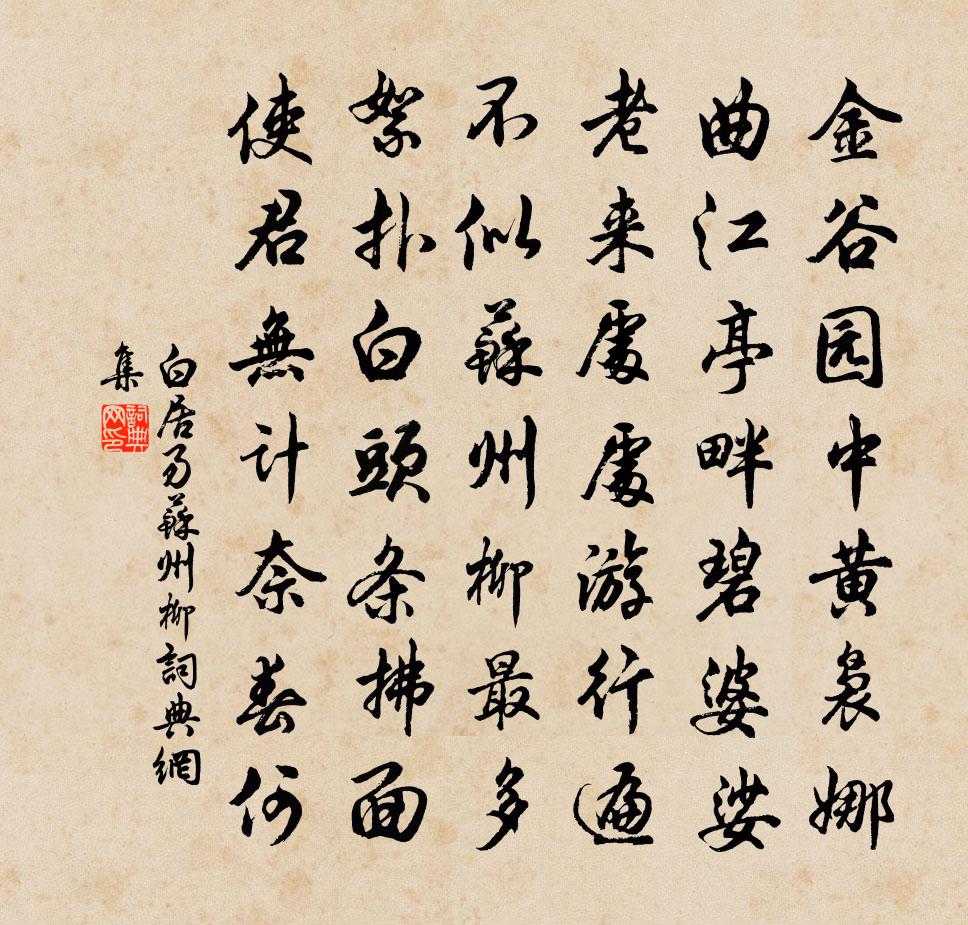 金谷园中黄袅娜
曲江亭畔碧婆娑
老来处处游行遍
不似蘇州柳最多
絮扑白頭条拂面
使君無計奈春何
白居易蘇州柳詞典網
集
詞典网印